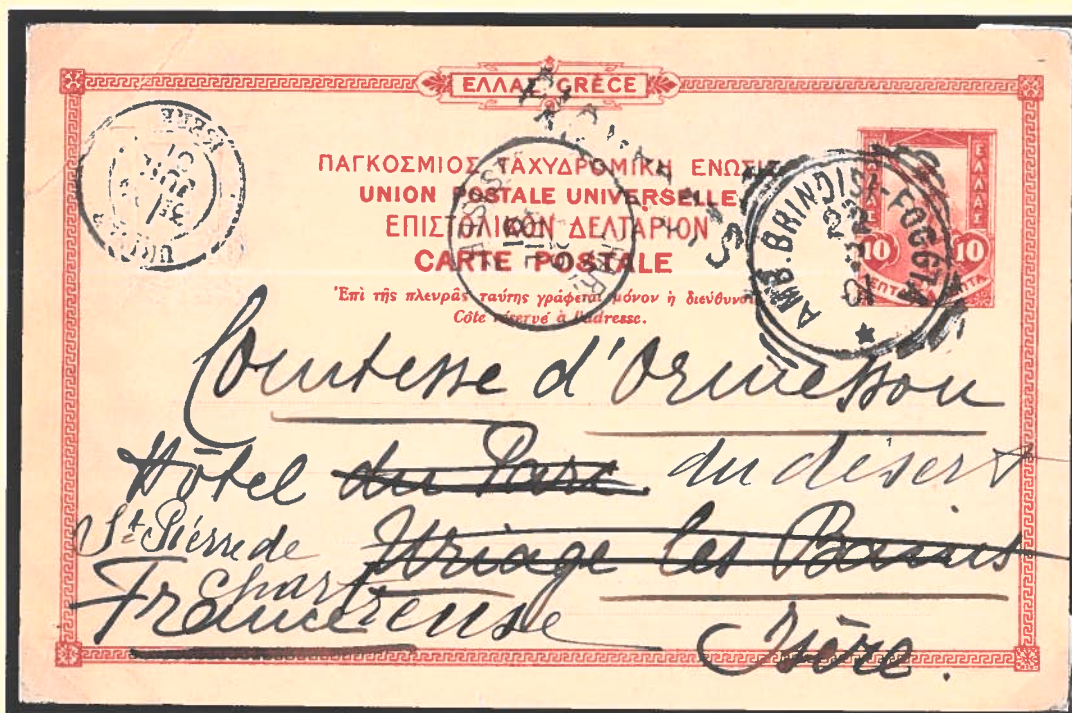 ΕΛΛΑΣ GRÈCE
ΠΑΓΚΟΣΜΙΟΣ ΤΑΧΥΔΡΟΜΙΚΗ ΕΝΩΣΙΣ
UNION POSTALE UNIVERSELLE
ΕΠΙΣΤΟΛΙΚΟΝ ΔΕΛΤΑΡΙΟΝ
CARTE POSTALE
Ἐπὶ τῆς πλευρᾶς ταύτης γράφεται μόνον ἡ διεύθυνσις
Côte réservé à l'adresse.
ΕΛΛΑΣ
10 10
ΛΕΠΤΑ ΛΕΠΤΑ
AMB. BRINDISI-FOGGIA
ISERE
Comtesse d'Ormesson
Hôtel du Parc du désert
St Pierre de Uriage les Bains
Chartreuse
France Isère.